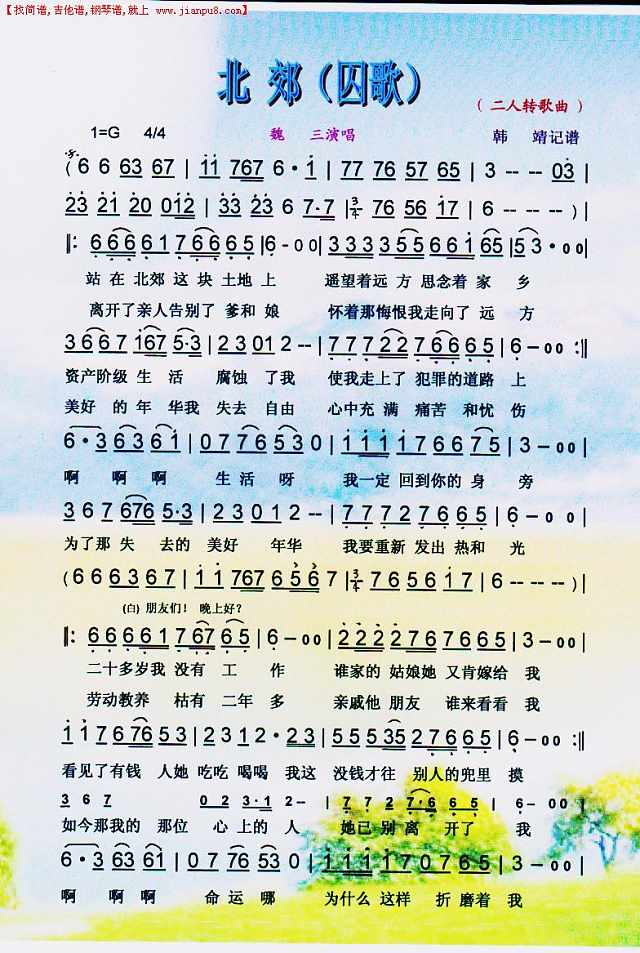 【找简谱,吉他谱,钢琴谱,就上 www.jianpu8.com】
北 郊（囚歌）
（ 二人转歌曲 ）
1=G 4/4 魏 三演唱 韩 靖记谱
( 6 6 63 67 | 11 767 6 · 1 | 77 76 57 65 | 3 -- -- 03 |
23 21 20 012 | 33 23 6 7·7 | 3/4 76 56 17 | 6 -- -- ) |
‖: 6 6 6 6 1 7 6 6 6 5 | 6 - 0 0 | 3 3 3 3 5 5 6 6 1 65 | 5 3 · 0 0 |
站 在 北郊 这 块 土地 上 遥望 着 远 方 思念 着 家 乡
离开了亲人告别了 爹和 娘 怀着那悔恨我走向了 远 方
3 6 6 7 167 5·3 | 2 3 0 1 2 -- | 7 7 7 2 2 7 6 6 6 5 | 6 - 0 0 :‖
资产阶级 生 活 腐蚀 了我 使我走上了 犯罪的道路 上
美好 的 年 华我 失去 自由 心中充 满 痛苦 和忧 伤
6 · 3 6 3 6 1 | 0 7 7 6 5 3 0 | 1 1 1 1 7 6 6 7 5 | 3 - 0 0 |
啊 啊啊 啊 生 活 呀 我一定 回到你的 身 旁
3 6 7 676 5·3 | 2 3 0 1 2 -- | 7 7 7 2 7 6 6 6 5 | 6 - 0 0 |
为了那 失 去的 美好 年华 我要重新 发出 热和 光
( 6 6 6 3 6 7 | 1 1 767 6 5 6 7 | 3/4 7 6 5 6 1 7 | 6 -- -- ) |
(白) 朋友们！ 晚上好？
‖: 6 6 6 6 1 7 67 6 5 | 6 - 0 0 | 2 2 2 2 7 6 7 6 6 5 | 6 - 0 0 |
二十多岁我 没有 工 作 谁家的 姑娘她 又肯嫁给 我
劳动教养 枯有 二年 多 亲戚他 朋友 谁来看看 我
1 1 7 6 7 6 5 3 | 2 3 1 2 · 2 3 | 5 5 5 5 3 5 2 7 6 6 5 | 6 - 0 0 :‖
看见了有钱 人她 吃吃 喝喝 我这 没钱才往 别人的兜里 摸
3 6 7 0 2 3·1 2 -- | 7 7 7 2 7·6 6 5 | 6 - 0 0 |
如今那我的 那位 心 上的 人 她已别离 开了 我
6 · 3 63 61 | 0 7 76 53 0 | 1 1 1 1 7 0 7 6 6 5 | 3 - 0 0 |
啊 啊啊 啊 命运 哪 为什么 这样 折 磨着 我